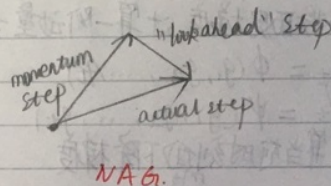 "lookahead" step
momentum
step
actual step
NAG.